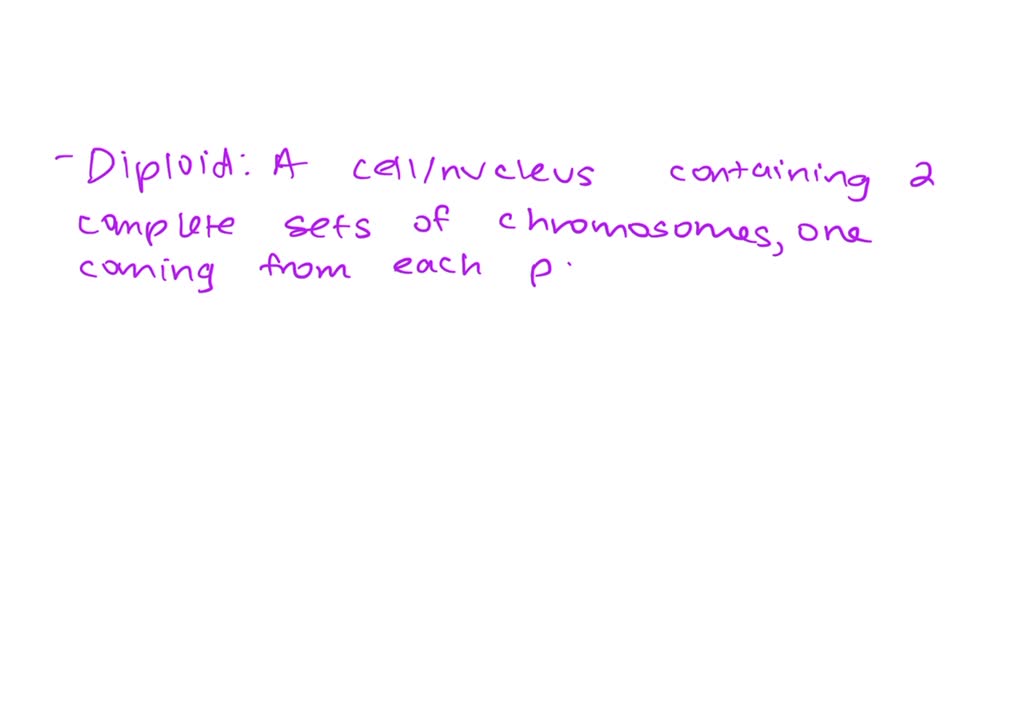 - Diploid: A cell/nucleus containing 2
complete sets of chromosomes, one
coming from each p.